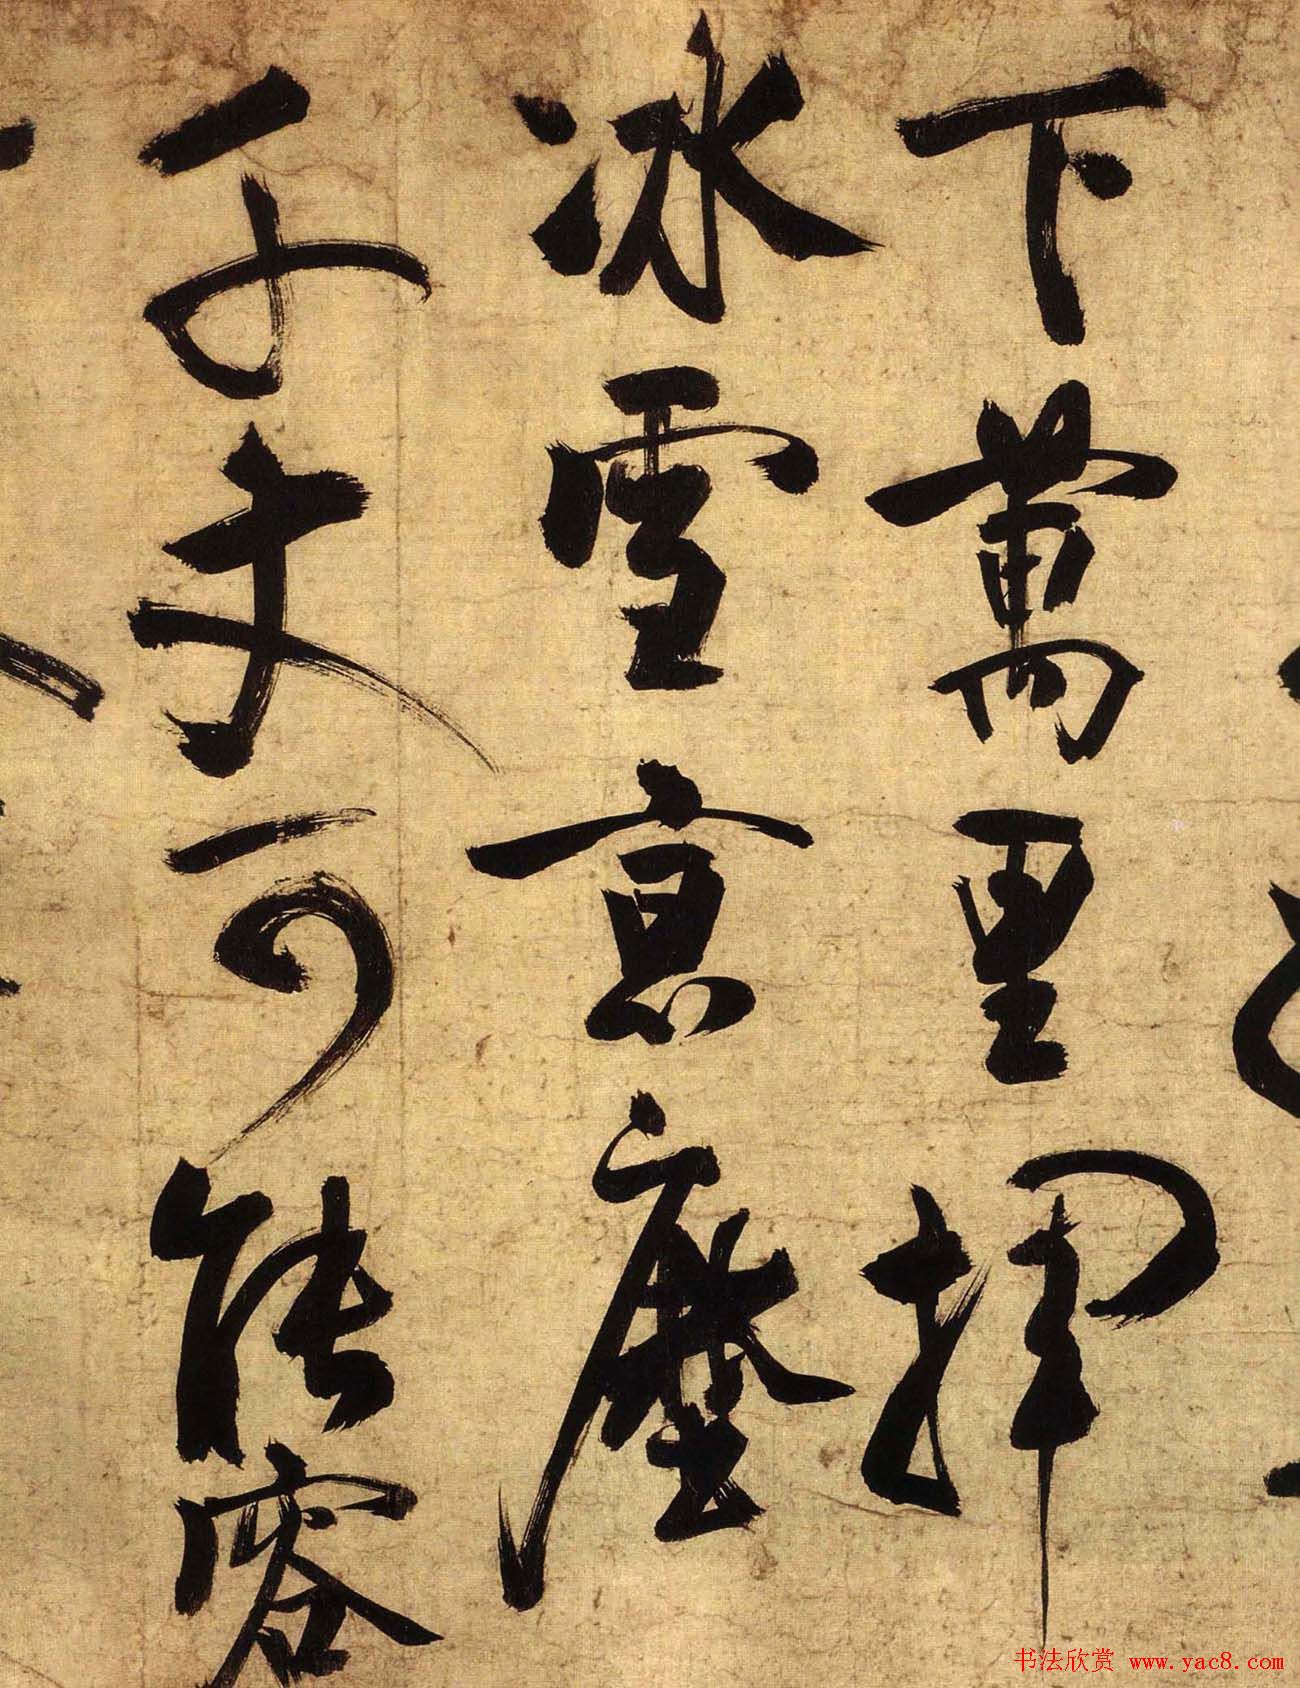 下萬里揮
冰雪京塵
千丈可能容
书法欣赏 www.yac8.com